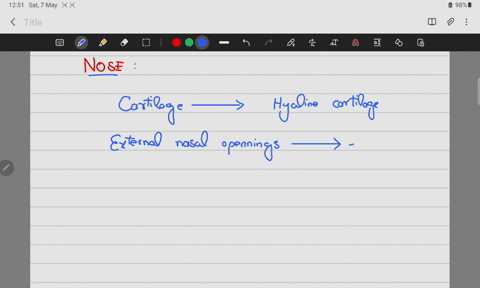 12:51 Sat, 7 May
98%
Title
NOSE :
Cartilage → Hyaline cartilage
External nasal opennings → -